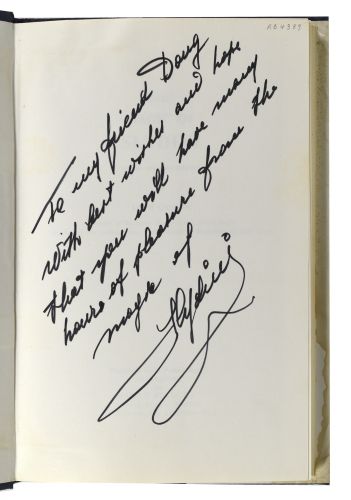 AB4389
To my friend Doug
With best wishes and hope
that you will have many
hours of pleasure from the
magic of
Slydini